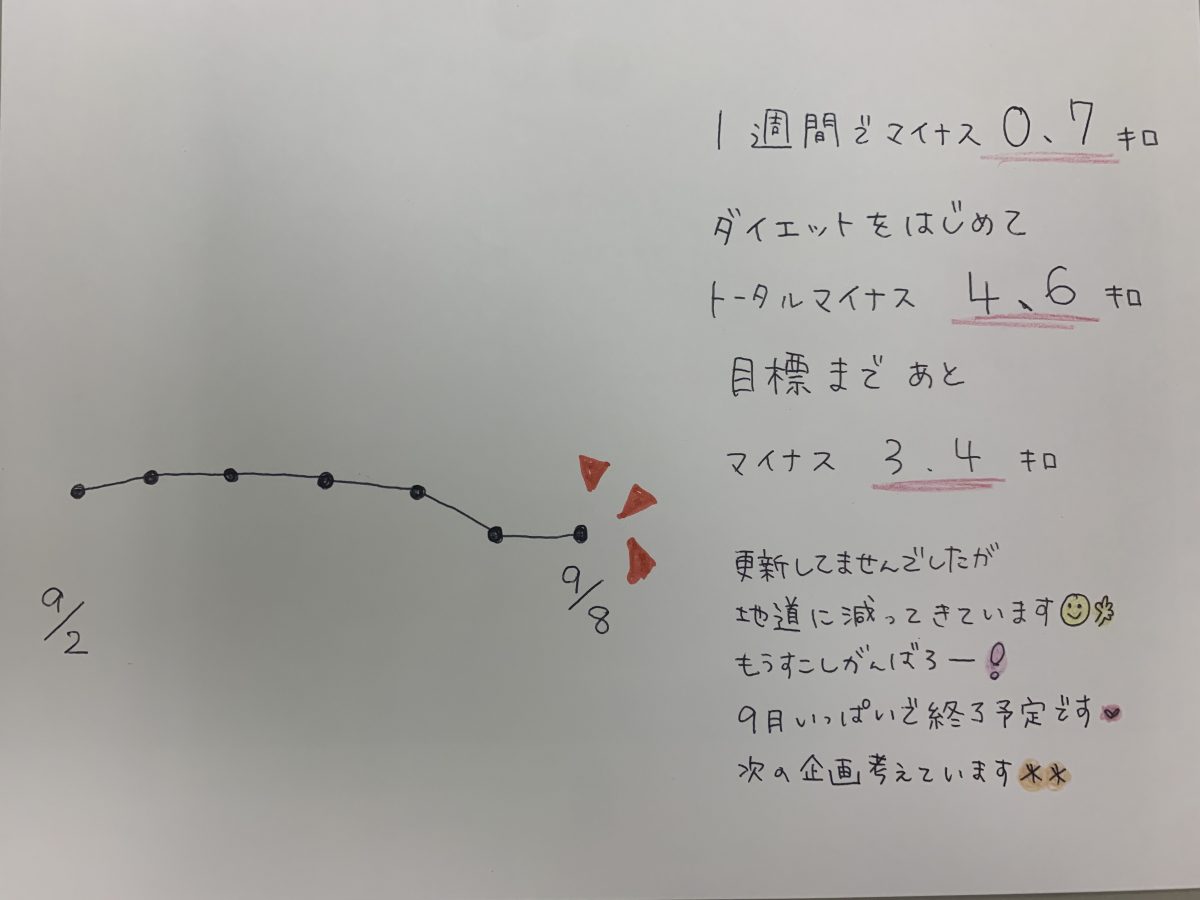 1週間でマイナス 0、7 キロ
ダイエットをはじめて
トータルマイナス 4、6 キロ
目標まで あと
マイナス 3.4 キロ
更新してませんでしたが
地道に減ってきています
もうすこしがんばろー!
9月いっぱいで終了予定です
次の企画考えています**
9/2
9/8